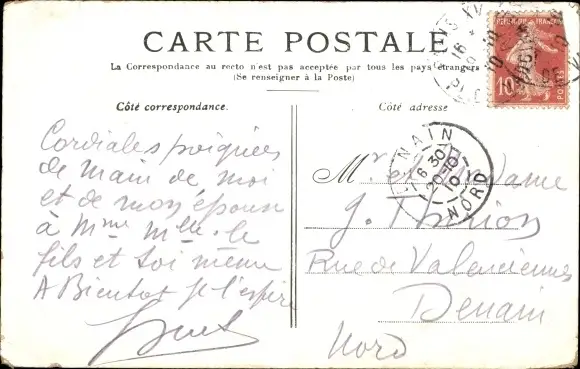 CARTE POSTALE
La Correspondance au recto n'est pas acceptée par tous les pays étrangers
(Se renseigner à la Poste)
Côté correspondance.
Côté adresse
REPUBLIQUE FRANÇAISE
10
POSTES
DENAIN
6 30
20-10
10
NORD
Cordiales poignées
de main de moi
et de mon épouse
à Mme Mlle le
fils et toi même
A Bientot je l'espère
Mr et Madame
J. Thirion
Rue de Valenciennes
Denain
Nord